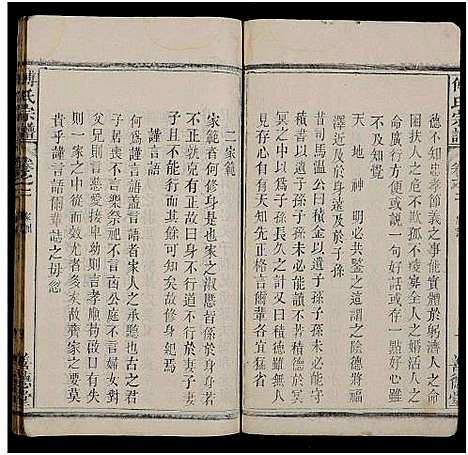 傅氏宗譜
德不知忠孝節義之事能實體於躬濟人之急
扶人之危不欺孤不虐寡全人之婚活人之
命廣行方便或說一句好話或存一點好心無人
知覺
天地神明必共鑒之這謂之陰德將
澤近及於身遠及於子孫
昔司馬溫公曰積金以遺子孫子孫未必能守
積書以遺子孫子孫未必能讀不若積陰德於冥
冥之中以為子孫長久之計又曰積德雖無人
見存心自有天知此先正格言爾輩各宜猛省
善德堂
二家範
家範者何修身是也家之淑慝皆係於身身
不正就是有家範亦不行道不行於妻子妻
子且不行而况於他人乎可知欲齊家故修身範焉
謹言語
何為謹言語蓋言語者家人之承聽也古之君
子居喪不言樂祭祀不言凶公庭不言婦女對
父兄則言慈愛接卑幼則言孝康勿致啟口有失
一家之中從而效尤者多矣故齊家之要莫
貴乎謹言語爾輩誌之毋忽
傅氏宗譜
卷之二
家訓
善德堂